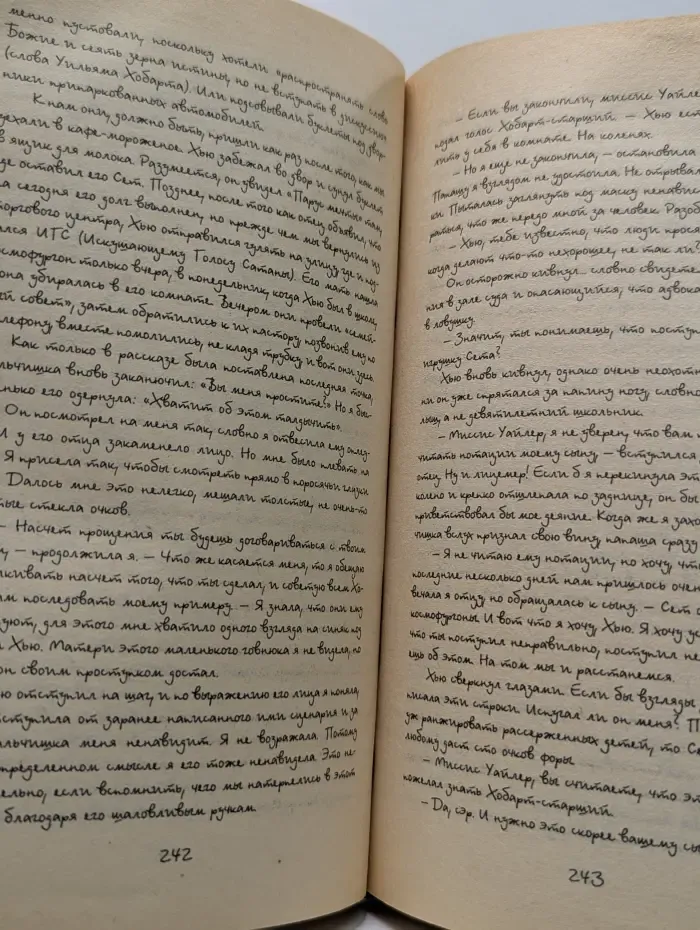 менно пустовали, поскольку хотели «распространять слово
Божие и сеять зерна истины, но не вступать в дискуссии»
(слова Уильяма Хобарта). Или подсовывали буклеты под двор-
ники припаркованных автомобилей.
К нам они, должно быть, пришли как раз после того, как мы
уехали в кафе-мороженое. Хью забежал во двор и сунул буклет
в ящик для молока. Разумеется, он увидел «Парус мечты» там,
где оставил его Сет. Позднее, после того как отец объявил, что
на сегодня его долг выполнен, но прежде чем мы вернулись из
торгового центра, Хью отправился гулять на улицу, где и под-
ался ИТС (Искушающему Голосу Сатаны). Его мать нашла
космофургон только вчера, в понедельник, когда Хью был в школе,
она убиралась в его комнате. Вечером они провели «семей-
й совет», затем обратились к их пастору, позвонив ему по
елефону, вместе помолились, не кладя трубку, и вот они здесь.
Как только в рассказе была поставлена последняя точка,
льчишка вновь заканючил: «Вы меня простите?» Но я бы-
нько его одернула: «Хватит об этом талдычить».
Он посмотрел на меня так, словно я отвесила ему оплеу-
И у его отца закаменело лицо. Но мне было плевать на
Я присела так, чтобы смотреть прямо в поросячьи глазки
Далось мне это нелегко, мешали толстые, не очень-то
тые стекла очков.
— Насчет прощения ты будешь договариваться с твоим
у, — продолжила я. — Что же касается меня, то я обещаю
лкивать насчет того, что ты сделал, и советую всем Хо-
ам последовать моему примеру. — Я знала, что они ему
уют, для этого мне хватило одного взгляда на синяк под
Хью. Матери этого маленького говнюка я не видела, но
он своим проступком достал.
ю отступил на шаг, и по выражению его лица я поняла,
ступила от заранее написанного ими сценария и за
альчишка меня ненавидит. Я не возражала. Потому
определенном смысле я его тоже ненавидела. Это не-
ельно, если вспомнить, чего мы натерпелись в этот
благодаря его шаловливым ручкам.
242
— Если вы закончили, миссис Уайлер
подал голос Хобарт-старший. — Хью ест
лить у себя в комнате. На коленях.
— Но я еще не закончила, — остановила
Папашу я взглядом не удостоила. Не отрывал
ки. Пыталась заглянуть под маску ненавис
раться, что же передо мной за человек. Разоб
— Хью, тебе известно, что люди прося
когда делают что-то нехорошее, не так ли?
Он осторожно кивнул... словно свидете
ния в зале суда и опасающийся, что адвока
в ловушку.
— Значит, ты понимаешь, что поступ
игрушку Сета?
Хью вновь кивнул, однако очень неохотн
ки он уже спрятался за папину ногу, словно
лыш, а не девятилетний школьник.
— Миссис Уайлер, я не уверен, что вам н
читать нотации моему сыну, — вступился
отец. Ну и лицемер! Если б я перекинула эт
колено и крепко отшлепала по заднице, он бы
приветствовал бы мое деяние. Когда же я зах
чишка вслух признал свою вину, папаша сразу
— Я не читаю ему нотации, но хочу, что
последние несколько дней нам пришлось очен
вечала я отцу, но обращалась к сыну. — Сет о
космофургоны. И вот что я хочу, Хью. Я хочу ус
что ты поступил неправильно, поступил не
ешь об этом. На том мы и расстанемся.
Хью сверкнул глазами. Если бы взгляды
писала эти строки. Испугал ли он меня? П
уж ранжировать рассерженных детей, то Се
любому даст сто очков форы.
— Миссис Уайлер, вы считаете, что э
пожелал знать Хобарт-старший.
— Да, сэр. И нужно это скорее вашему сы
243